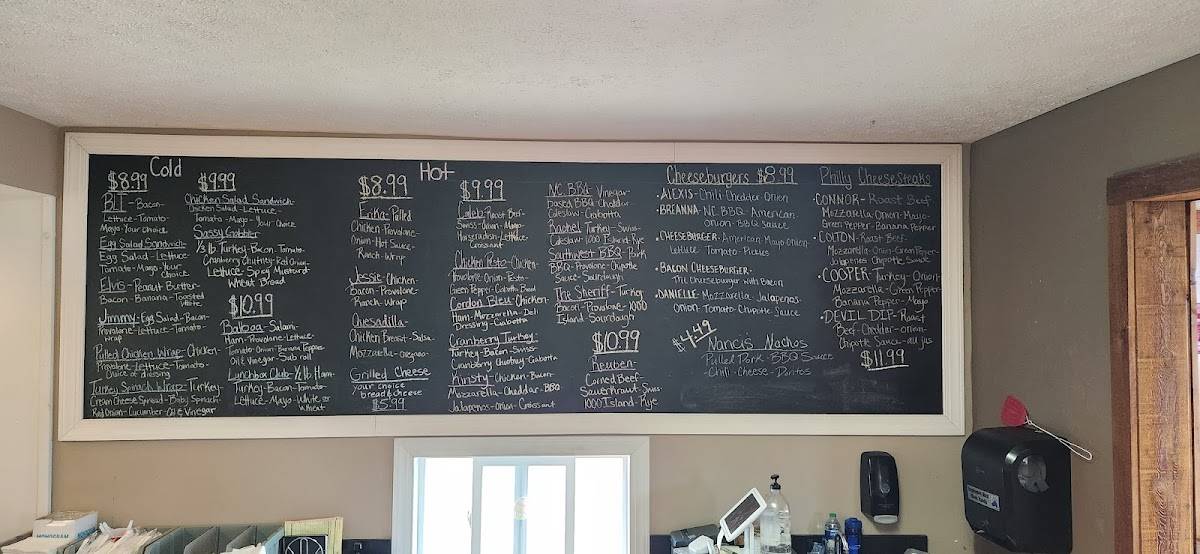 Cold
$8.99
BLT - Bacon-
Lettuce-Tomato-
Mayo-Your choice
Egg Salad Sandwich-
Egg Salad-Lettuce-
Tomato-Mayo-Your
Choice
Elvis-Peanut Butter-
Bacon-Banana-Toasted
White
Jimmy-Egg Salad-Bacon-
Provolone-Lettuce-Tomato-
Wrap
Pulled Chicken Wrap-Chicken-
Provolone-Lettuce-Tomato-
Choice of dressing
Turkey Spinach Wrap-Turkey-
Cream Cheese Spread-Baby Spinach-
Red Onion-Cucumber-Oil & Vinegar
$9.99
Chicken Salad Sandwich-
Chicken Salad-Lettuce-
Tomato-Mayo-Your Choice
Sassy Gobbler-
1/3 lb Turkey-Bacon-Tomato-
Cranberry Chutney-Red Onion-
Lettuce-Spicy Mustard
Wheat Bread
$10.99
Balboa-Salami-
Ham-Provolone-Lettuce-
Tomato-Onion-Banana Peppers
Oil & Vinegar-Sub roll
Lunchbox Club-1/2 lb Ham-
Turkey-Bacon-Tomato-
Lettuce-Mayo-White or
Wheat
Hot
$8.99
Erika-Pulled
Chicken-Provolone-
Onion-Hot Sauce-
Ranch-Wrap
Jessie-Chicken-
Bacon-Provolone-
Ranch-Wrap
Quesadilla-
Chicken Breast-Salsa-
Mozzarella-Oregano-
Grilled Cheese
your choice
bread & cheese
$5.99
$9.99
Caleb-Roast Beef-
Swiss-Onion-Mayo-
Horseradish-Lettuce-
Croissant
Chicken Pesto-Chicken-
Provolone-Onion-Pesto-
Green Pepper-Ciabatta Bread
Cordon Bleu-Chicken-
Ham-Mozzarella-Deli
Dressing-Ciabatta
Cranberry Turkey-
Turkey-Bacon-Swiss-
Cranberry Chutney-Ciabatta
Kirsty-Chicken-Bacon-
Mozzarella-Cheddar-BBQ
Jalapenos-Onion-Croissant
NC BBQ-Vinegar
based BBQ-Cheddar-
Coleslaw-Ciabatta
Rachel-Turkey-Swiss-
Coleslaw-1000 Island-Rye
Southwest BBQ-Pork
BBQ-Provolone-Chipotle
Sauce-Sourdough
The Sheriff-Turkey
Bacon-Provolone-1000
Island-Sourdough
$10.99
Reuben-
Corned Beef-
Sauerkraut-Swiss-
1000 Island-Rye
Cheeseburgers $8.99
•ALEXIS-Chili-Cheddar-Onion
•BREANNA-NC BBQ-American
Onion-BBQ Sauce
•CHEESEBURGER-American-Mayo-Onion-
Lettuce-Tomato-Pickles
•BACON CHEESEBURGER-
The Cheeseburger with Bacon
•DANIELLE-Mozzarella-Jalapenos-
Onion-Tomato-Chipotle Sauce
$4.49
Nancis Nachos
Pulled Pork-BBQ Sauce
-Chili-Cheese-Doritos
Philly Cheesesteaks
•CONNOR-Roast Beef
Mozzarella-Onion-Mayo-
Green Pepper-Banana Pepper
•COLTON-Roast Beef-
Mozzarella-Onion-Green Pepper-
Jalapenos-Chipotle Sauce
•COOPER-Turkey-Onion
Mozzarella-Green Pepper-
Banana Pepper-Mayo
•DEVIL DIP-Roast
Beef-Cheddar-Onion-
Chipotle Sauce-au jus
$11.99